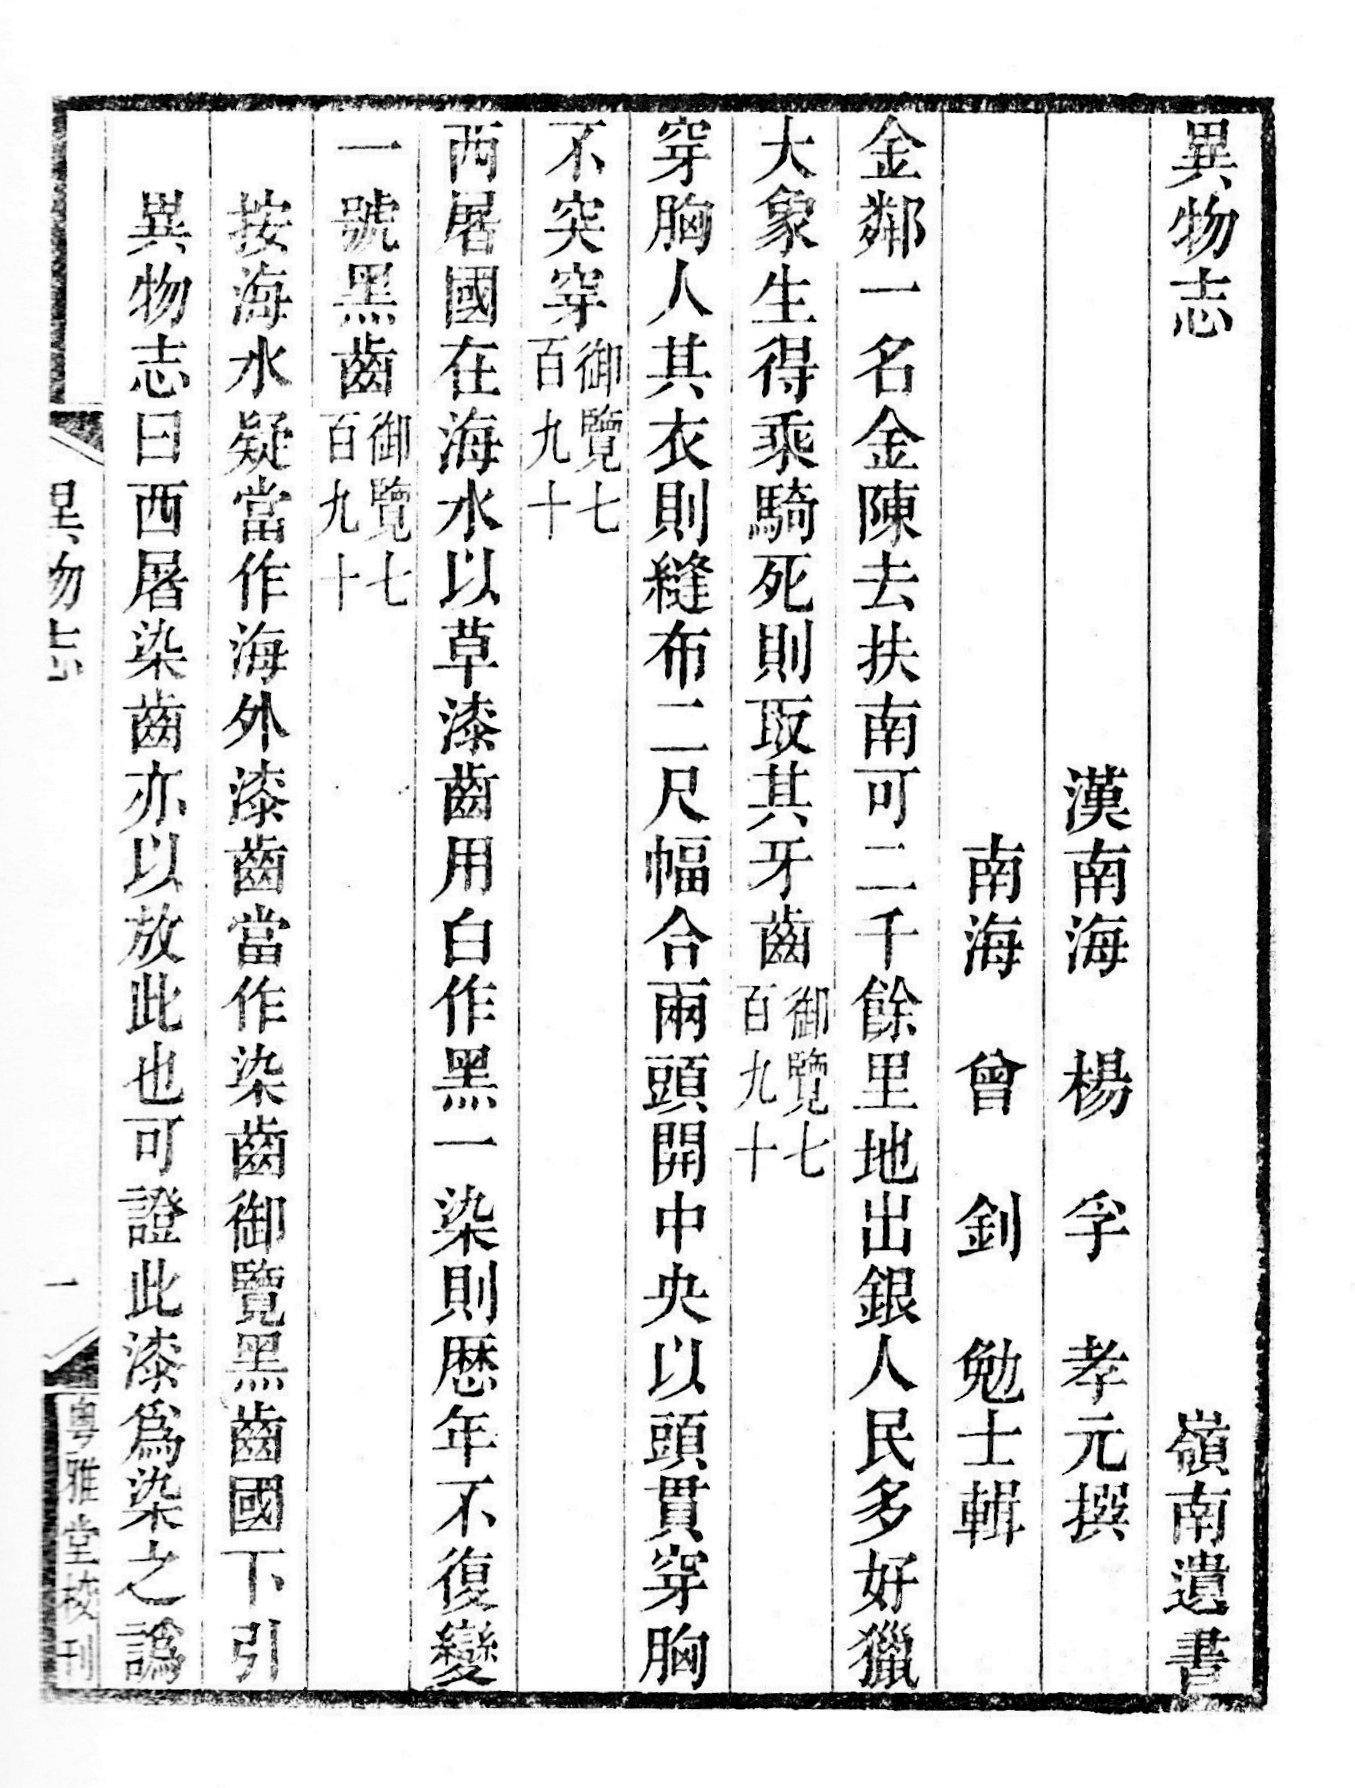 異物志　嶺南遺書
漢南海　楊　孚　孝元撰
南海　曾　釗　勉士輯
金鄰一名金陳去扶南可二千餘里地出銀人民多好獵
大象生得乘騎死則取其牙齒御覽七百九十
穿胸人其衣則縫布二尺幅合兩頭開中央以頭貫穿胸
不突穿御覽七百九十
西屠國在海水以草漆齒用白作黑一染則歷年不復變
一號黑齒御覽七百九十
按海水疑當作海外漆齒當作染齒御覽黑齒國下引
異物志曰西屠染齒亦以放此也可證此漆為染之譌
異物志　一　粵雅堂校刊